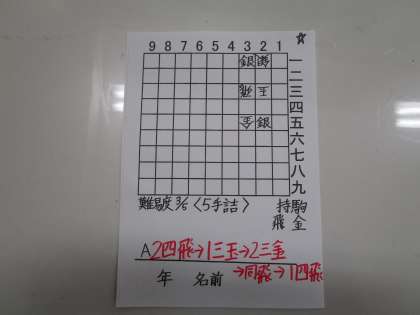 ☆
9 8 7 6 5 4 3 2 1
銀 一
二
飛 玉 三
四
金 銀 五
六
七
八
九
難易度 3/6 〈5手詰〉 持駒
飛 金
A 2四飛→1三玉→2三金
→同飛→1四飛
年 名前